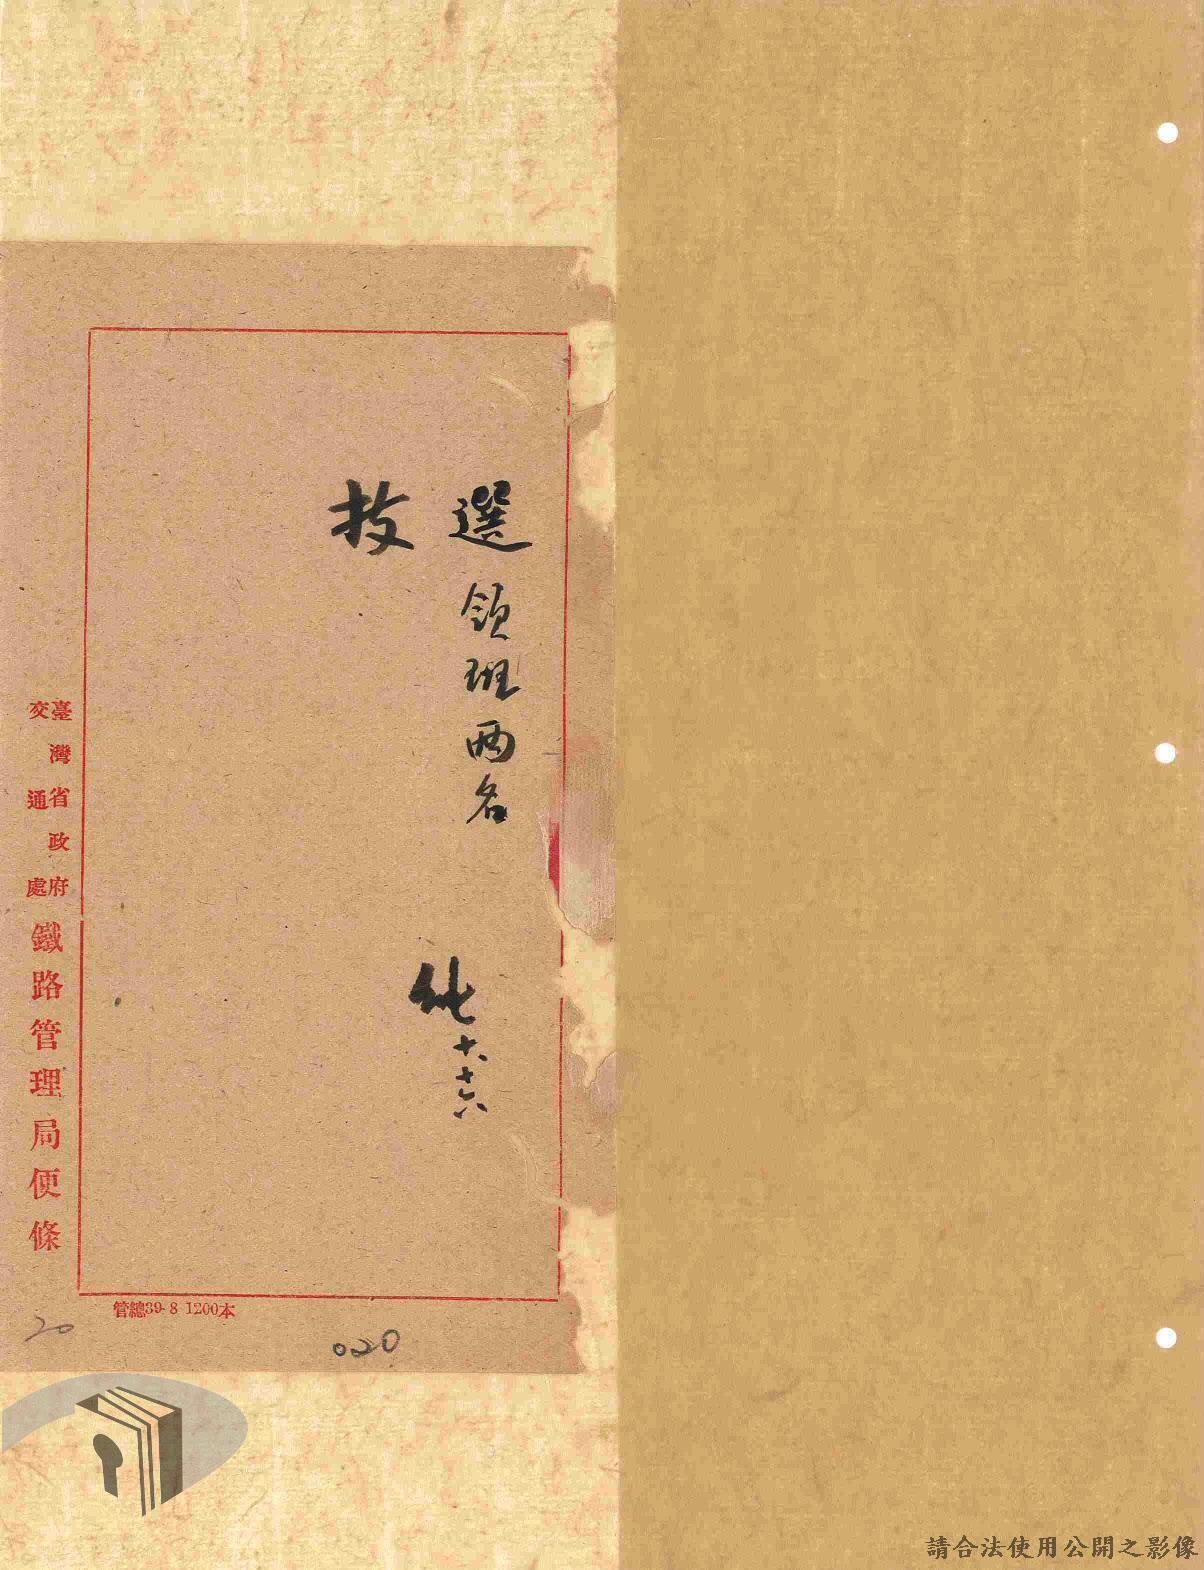 選領班兩名
技
純 十、十六
臺灣省政府
交通處
鐵路管理局便條
管總39-8 1200本
20
020
請合法使用公開之影像